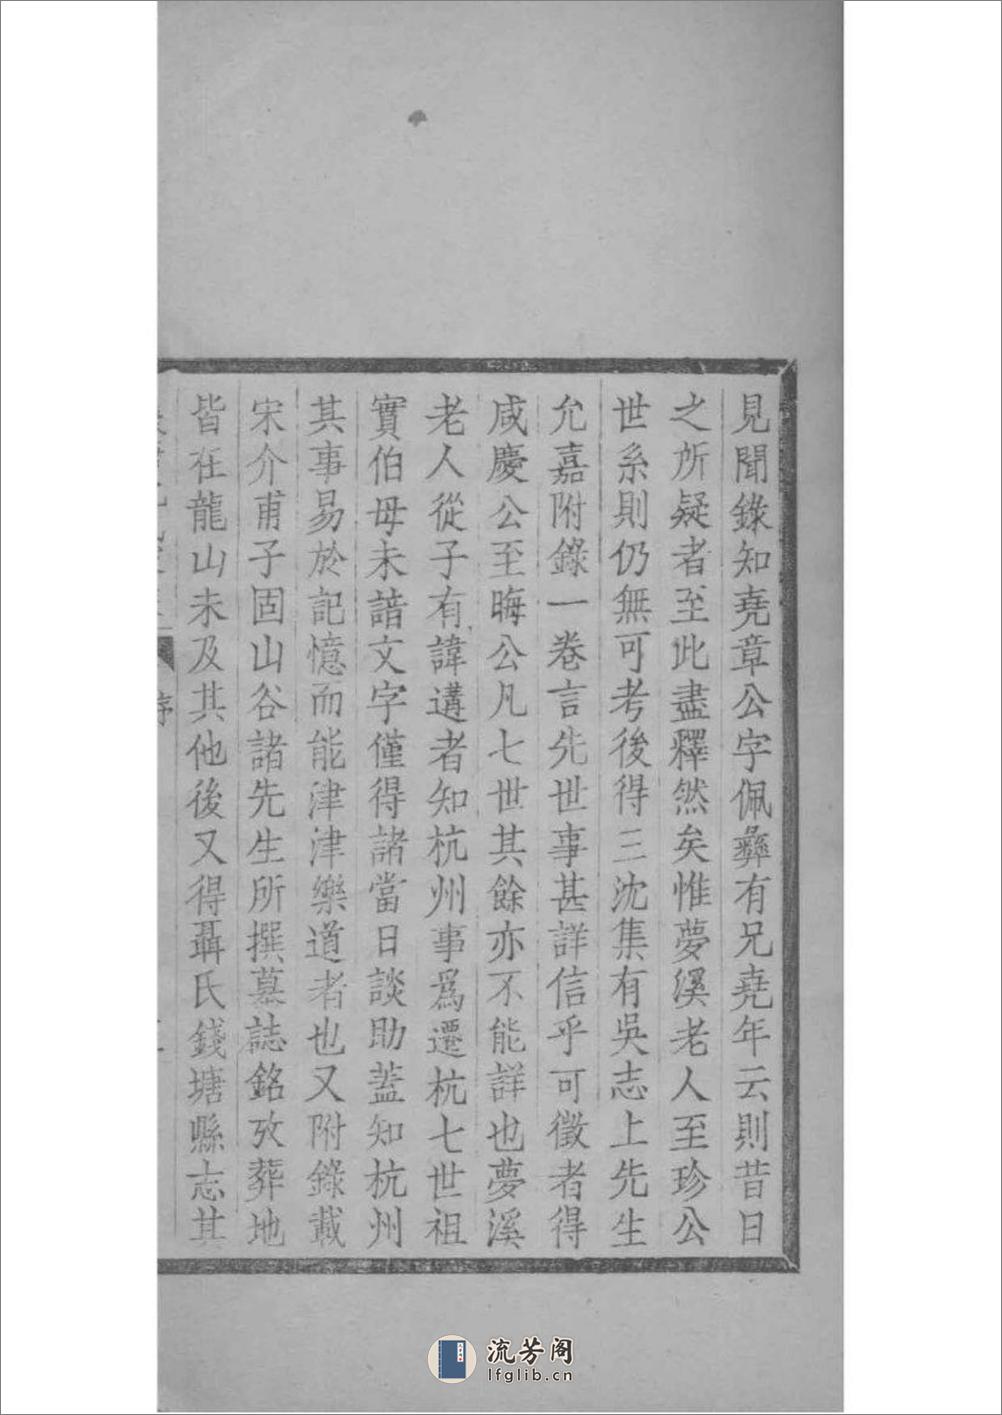 見聞錄知堯章公字佩彝有兄堯年云則昔日
之所疑者至此盡釋然矣惟夢溪老人至珍公
世系則仍無可考後得三沈集有吳志上先生
允嘉附錄一卷言先世事甚詳信乎可徵者得
咸慶公至晦公凡七世其餘亦不能詳也夢溪
老人從子有諱遘者知杭州事爲遷杭七世祖
實伯母未諳文字僅得諸當日談助蓋知杭州
其事易於記憶而能津津樂道者也又附錄載
宋介甫子固山谷諸先生所撰墓誌銘攷葬地
皆在龍山未及其他後又得聶氏錢塘縣志其
序
流芳阁
lfglib.cn